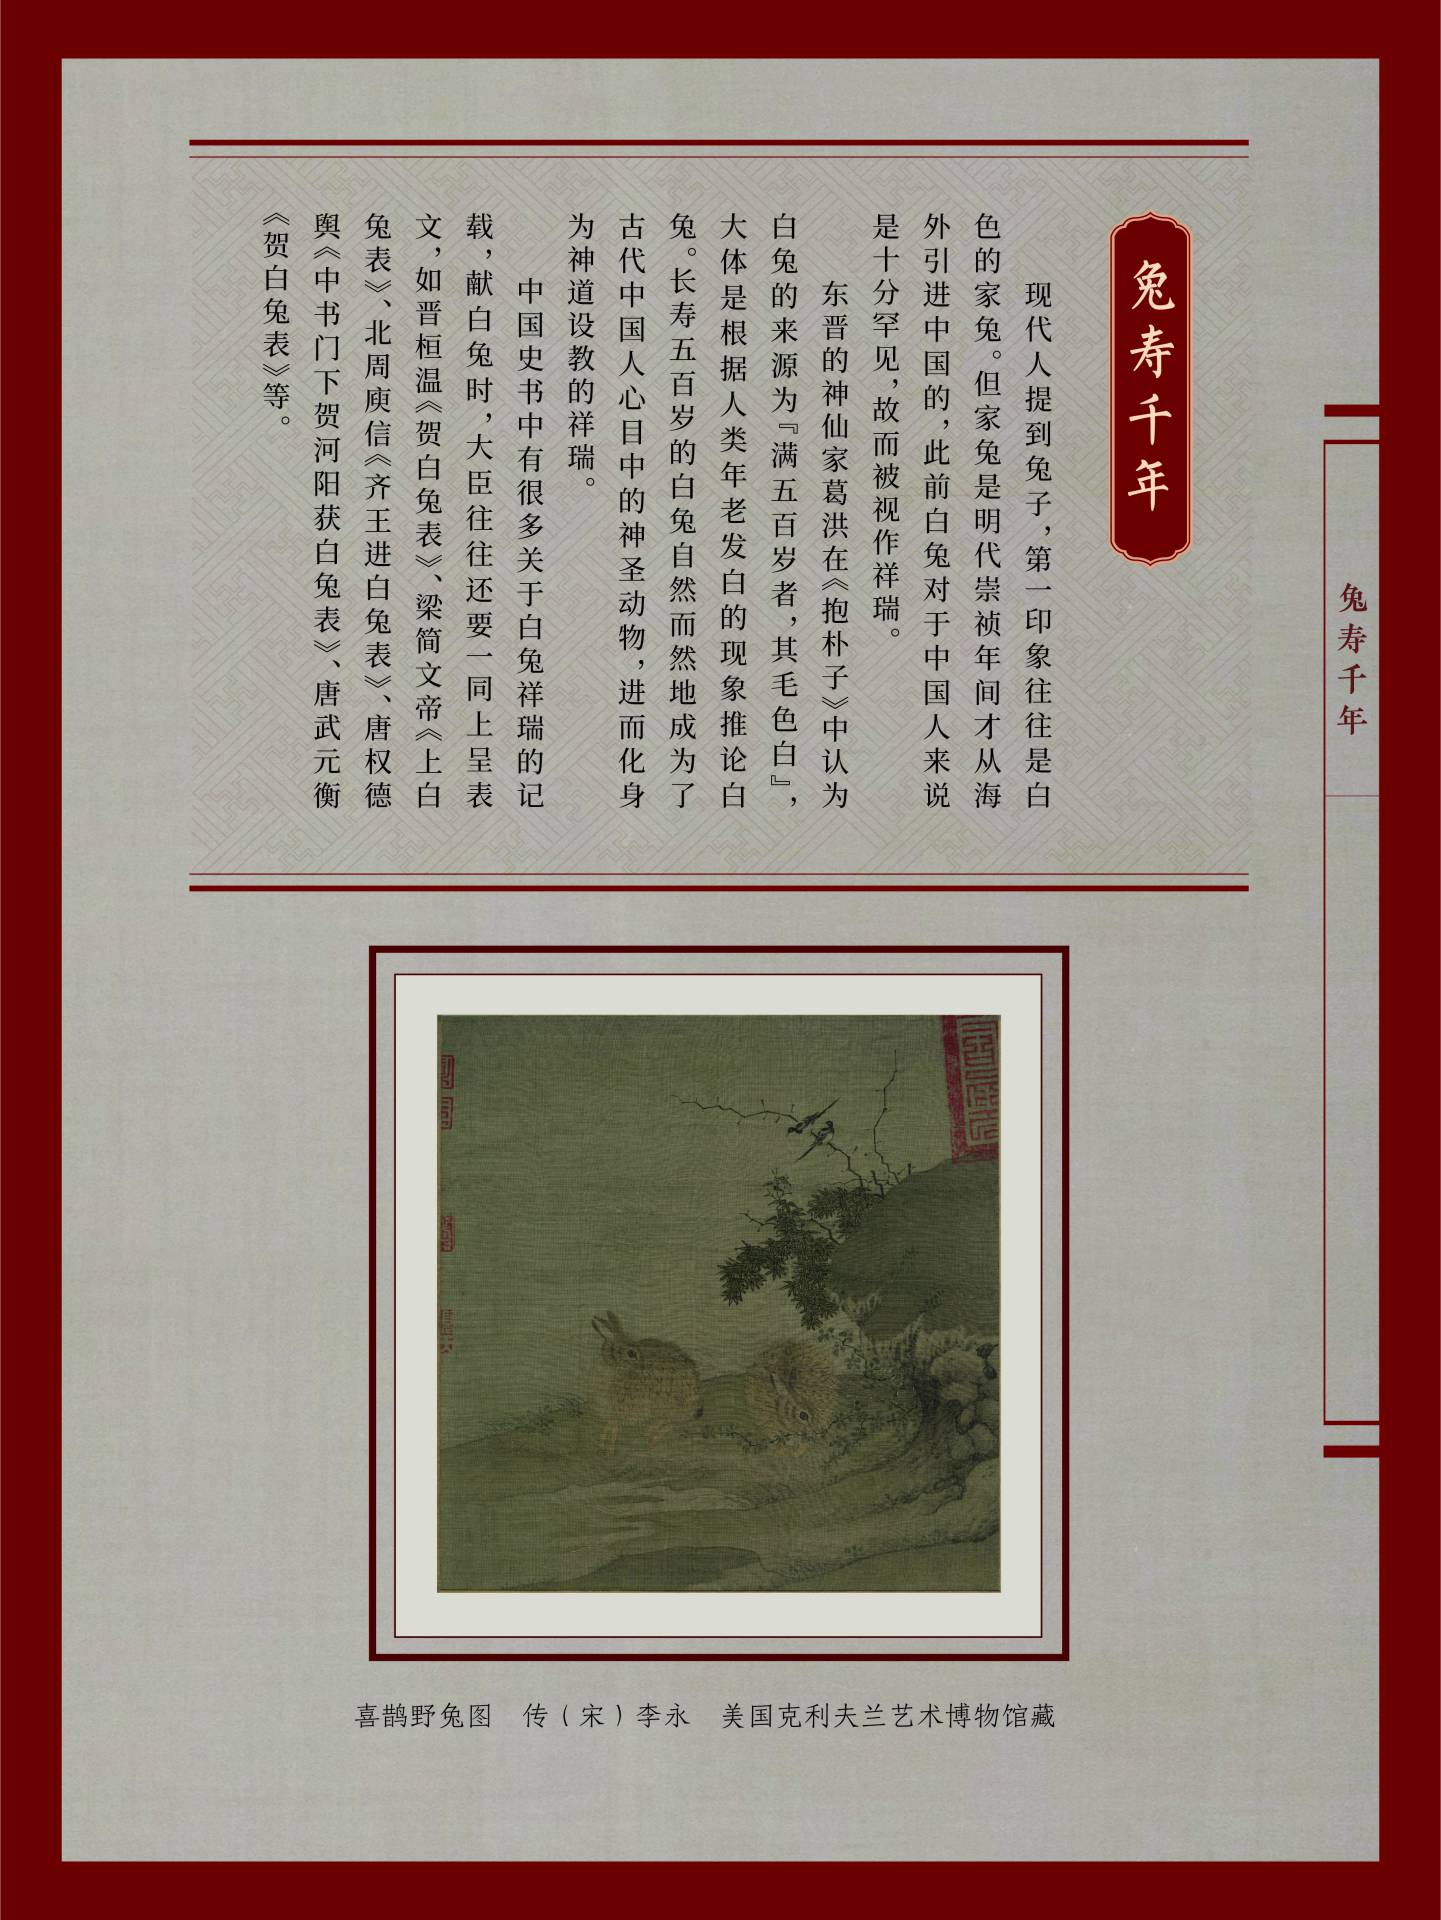 兔寿千年
现代人提到兔子，第一印象往往是白
色的家兔。但家兔是明代崇祯年间才从海
外引进中国的，此前白兔对于中国人来说
是十分罕见，故而被视作祥瑞。
东晋的神仙家葛洪在《抱朴子》中认为
白兔的来源为『满五百岁者，其毛色白』，
大体是根据人类年老发白的现象推论白
兔。长寿五百岁的白兔自然而然地成为了
古代中国人心目中的神圣动物，进而化身
为神道设教的祥瑞。
中国史书中有很多关于白兔祥瑞的记
载，献白兔时，大臣往往还要一同上呈表
文，如晋桓温《贺白兔表》、梁简文帝《上白
兔表》、北周庾信《齐王进白兔表》、唐权德
舆《中书门下贺河阳获白兔表》、唐武元衡
《贺白兔表》等。
兔寿千年
喜鹊野兔图　传（宋）李永　美国克利夫兰艺术博物馆藏